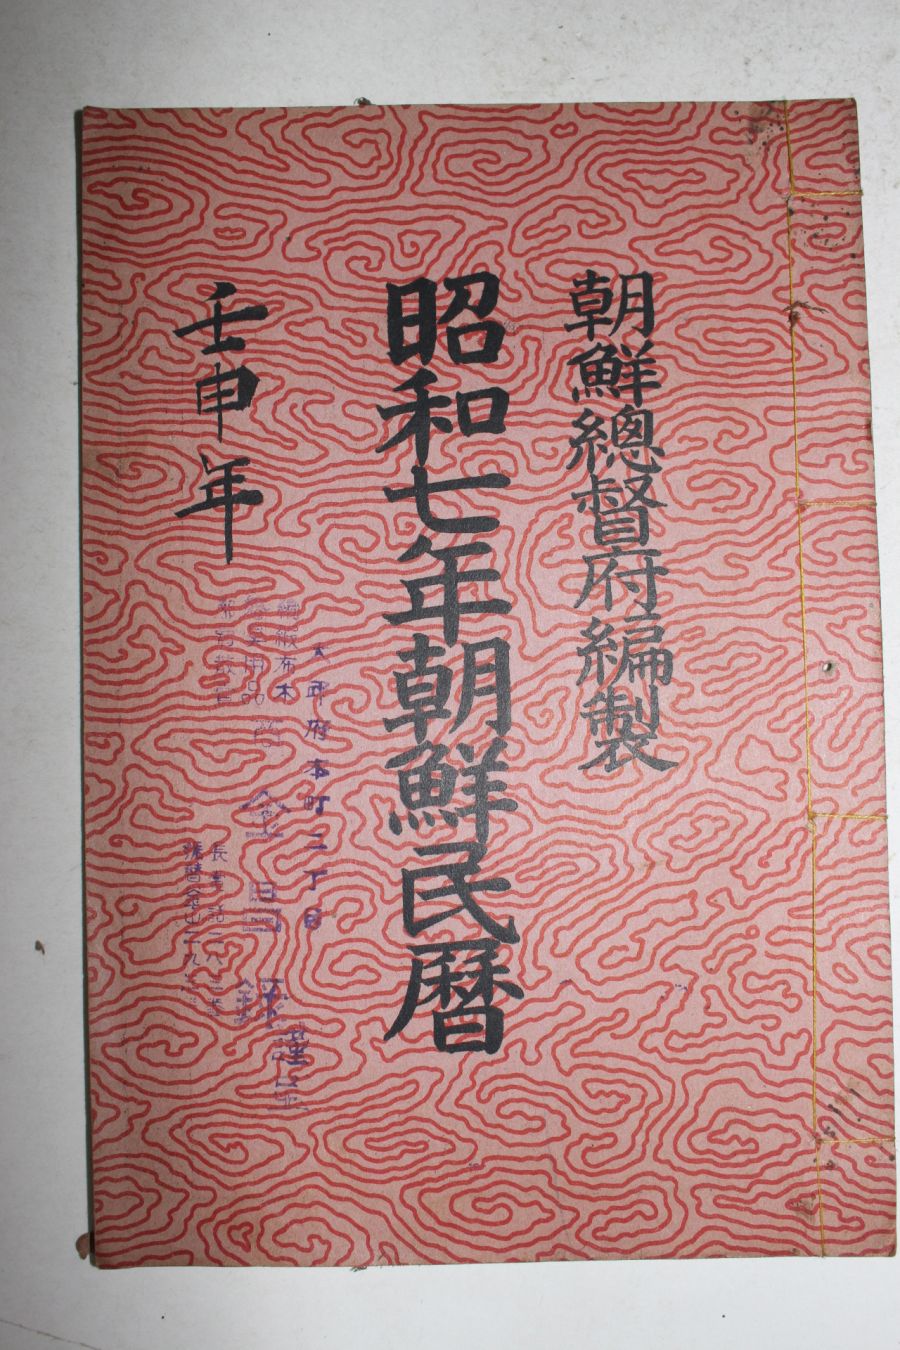 朝鮮總督府編製
昭和七年朝鮮民曆
壬申年
大邱府本町二丁目
綢緞布木
用品
金
謹呈